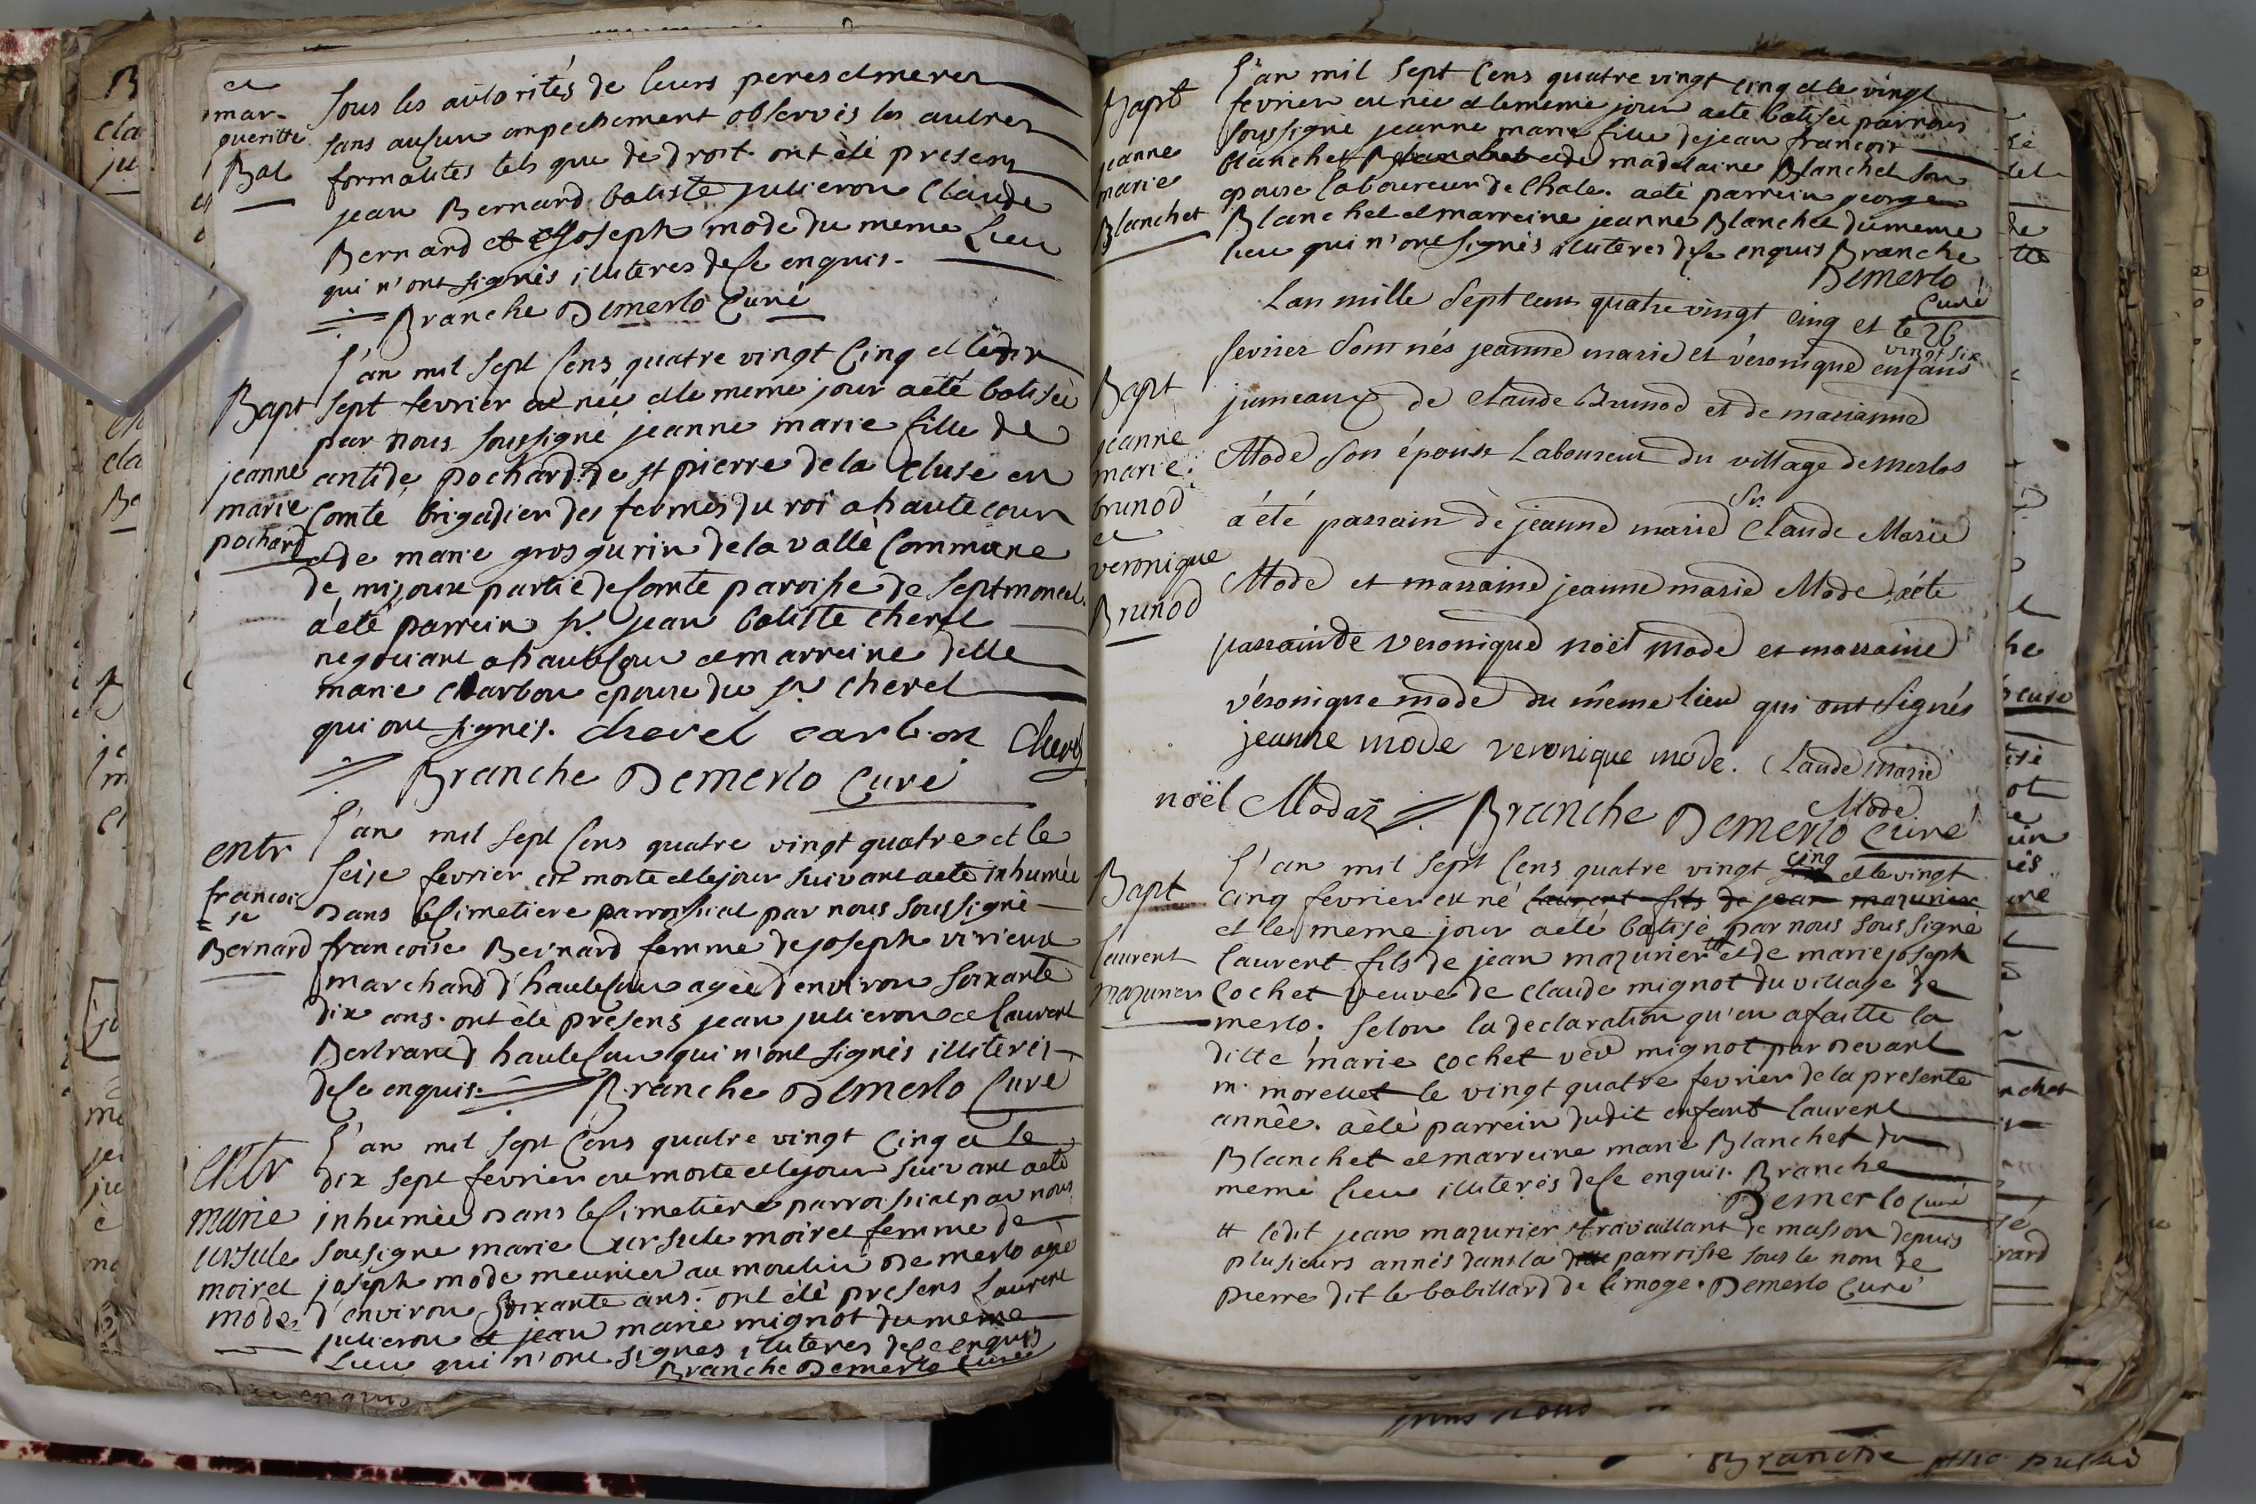 et
mar-
gueritte
Bal
sous les autorités de leurs peres et meres
sans aucun empechement observés les autres
formalités tels que de droit. ont été presens
jean Bernard batiste julieron Claude
Bernard et joseph mode du meme Lieu
qui n'ont signés illiteres de ce enquis.
Branche Demerlo Curé
Bapt
jeanne
marie
pochard
L'an mil sept Cens quatre vingt Cinq et le dix
sept fevrier est née et le meme jour a été batisée
par nous soussigné jeanne marie fille de
antide pochard de st pierre de la Cluse en
Comté brigadier des fermes du roi a hautecour
et de marie gros gurin de la vallé Commune
de mijoux partie de Comté paroisse de Septmoncel.
a été parrein sr. jean batiste cherel
negotiant a hautecour et marreine delle
marie charbon epouse du sr cherel
qui ont signés. cherel carbon cherel
Branche Demerlo Curé
entr
francoi
se
Bernard
L'an mil sept Cens quatre vingt quatre et le
seise fevrier est morte et le jour suivant a été inhumée
dans le Cimetiere parroissial par nous soussigné
francoise Bernard femme de joseph virieux
marchand d'hautecour agée d'environ soixante
dix ans. ont été présens jean julieron et laurent
Bertrand d'hautecour qui n'ont signés illiterés
de ce enquis. Branche Demerlo Curé
entr
marie
ursule
moiret
mode.
L'an mil sept Cens quatre vingt Cinq et le
dix sept fevrier est morte et le jour suivant a été
inhumée dans le Cimetiere parroissial par nous
sousigné marie ursule moiret femme de
joseph mode meunier au moulin de merlo agé
d'environ soixante ans. ont été presens Laurent
julieron et jean marie mignot du meme
Lieu qui n'ont signés illiteres de ce enquis
Branche Demerlo Curé
Bapt
jeanne
marie
Blanchet
L'an mil sept Cens quatre vingt cinq et le vingt
fevrier est née et le meme jour a été batisée par nous
soussigné jeanne marie fille de jean francois
Blanchet Blanchet et de madelaine Blanchet son
epouse laboureur de Chale. a été parrein george
Blanchet et marreine jeanne Blanchet du meme
lieu qui n'ont signés illiteres de ce enquis Branche
Demerlo
Curé
Bapt
jeanne
marie.
brunod
et
veronique
Brunod
Lan mille Sept cens quatre vingt cinq et le 26
vingt six
fevrier Sont nés jeanne marie et véronique enfans
jumeaux de Claude Brunod et de marianne
Mode Son épouse Laboureur du village de merlos
a été parrain de jeanne marie Sr. Claude Marie
Mode et marraine jeanne marie Mode, a été
parrain de veronique noël mode et marraine
véronique mode du même lieu qui ont signés
jeanne mode veronique mode. Claude marie
Mode
noël Modaz Branche Demerlo Curé
Bapt
laurent
mazurier
L'an mil sept Cens quatre vingt cinq et le vingt
cinq fevrier est né laurent fils de jean mazurier
et le meme jour a été batisé par nous soussigné
laurent fils de jean mazurier # et de marie joseph
Cochet veuve de claude mignot du village de
merlo. selon la declaration qu'en a faitte la
ditte marie cochet veve mignot par devant
mr morellet le vingt quatre fevrier de la presente
année. a été parrein dudit enfant laurent
Blanchet et marreine marie Blanchet du
meme lieu illiterés de ce enquis. Branche
Demerlo Curé
# ledit jean mazurier travaillant de masson depuis
plusieurs annés dans la parroisse sous le nom de
pierre dit le babillard de limoge. Demerlo Curé